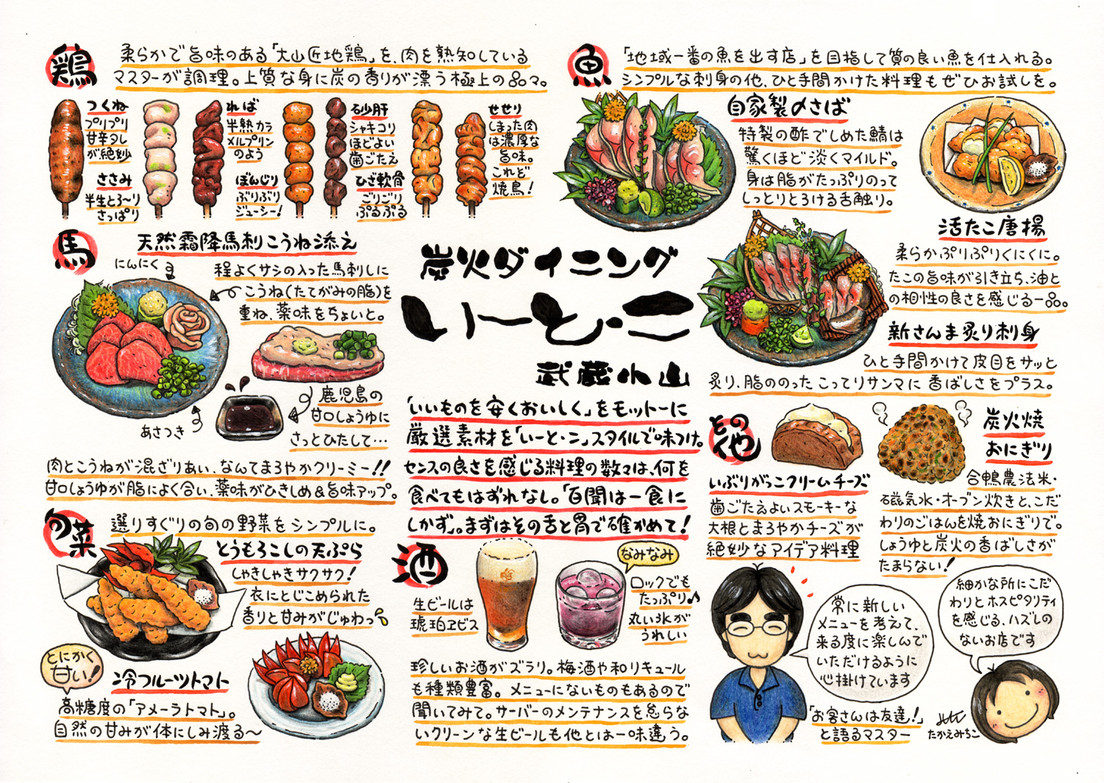 鶏
柔らかで旨味のある「大山匠地鶏」を、肉を熟知している
マスターが調理。上質な身に炭の香りが漂う極上の品々。
つくね
プリプリ
甘辛タレ
が絶妙
ささみ
半生とろ〜り
さっぱり
ればー
半熟カラ
メルプリン
のよう
ぼんじり
ぷりぷり
ジューシー!
砂肝
シャキコリ
ほどよい
歯ごたえ
ひざ軟骨
ごりごり
ぷるぷる
せせり
しまった肉
は濃厚な
旨味。
これぞ
焼鳥!
魚
「地域一番の魚を出す店」を目指して質の良い魚を仕入れる。
シンプルな刺身の他、ひと手間かけた料理もぜひお試しを。
自家製〆さば
特製の酢でしめた鯖は
驚くほど淡くマイルド。
身は脂がたっぷりのって
しっとりとろける舌触り。
活たこ唐揚
柔らかぷりぷりくにくに。
たこの旨味が引き立ち、油と
の相性の良さを感じる一品。
新さんま炙り刺身
ひと手間かけて皮目をサッと
炙り、脂ののったこってりサンマに香ばしさをプラス。
馬
天然霜降馬刺こうね添え
にんにく
程よくサシの入った馬刺しに
こうね(たてがみの脂)を
重ね、薬味をちょいと。
あさつき
鹿児島の
甘口しょうゆに
さっとひたして…
肉とこうねが混ざりあい、なんてまろやかクリーミー!!
甘口しょうゆが脂によく合い、薬味がひきしめ&旨味アップ。
炭火ダイニング
いーと・こ
武蔵小山
「いいものを安くおいしく」をモットーに
厳選素材を「いーと・こ」スタイルで味つけ。
センスの良さを感じる料理の数々は、何を
食べてもはずれなし。「百聞は一食に
しかず。まずはその舌と胃で確かめて!
旬菜
選りすぐりの旬の野菜をシンプルに。
とうもろこしの天ぷら
しゃきしゃきサクサク!
衣にとじこめられた
香りと甘みがじゅわっ
とにかく
甘い!
冷フルーツトマト
高糖度の「アメーラトマト」。
自然の甘みが体にしみ渡る〜
酒
生ビールは
琥珀ヱビス
なみなみ
ロックでも
たっぷり♪
丸い氷が
うれしい
珍しいお酒がズラリ。梅酒や和リキュール
も種類豊富。メニューにないものもあるので
聞いてみて。サーバーのメンテナンスを怠らな
いクリーンな生ビールも他とは一味違う。
その他
いぶりがっこクリームチーズ
歯ごたえよいスモーキーな
大根とまろやかチーズが
絶妙なアイデア料理
炭火焼
おにぎり
合鴨農法米・
磁気水・オーブン炊きと、こだ
わりのごはんを焼おにぎりで。
しょうゆと炭火の香ばしさが
たまらない!
常に新しい
メニューを考えて、
来る度に楽しんで
いただけるように
心掛けています
「お客さんは友達!」
と語るマスター
細かな所にこだ
わりとホスピタリティ
を感じる、ハズレの
ないお店です
たかえみちこ